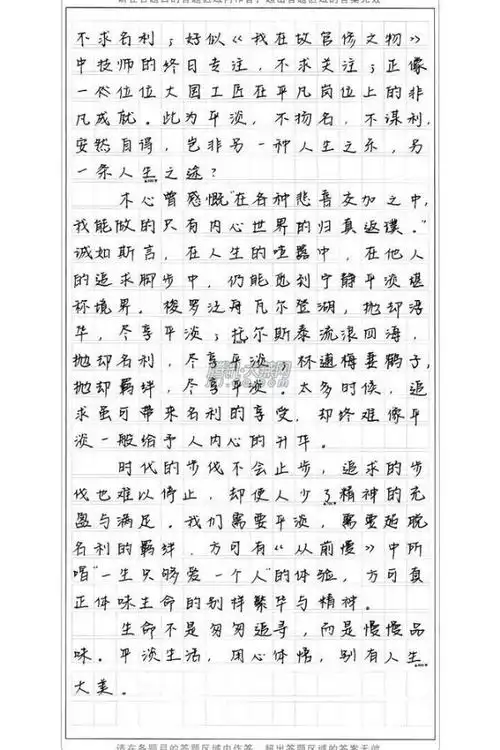 不求名利；好似《我在故宫修文物》
中技师的终日专注，不求关注；正像
一位位大国工匠在平凡岗位上的非
凡成就。此为平淡，不扬名，不谋利，
安然自得，岂非另一种人生之乐，另
一条人生之途？
木心曾感慨"在各种悲喜交加之中，
我能做的只有内心世界的归真返璞。"
诚如斯言，在人生的喧嚣中，在他人
的追求脚步中，仍能觅到宁静平淡堪
称境界。梭罗泛舟瓦尔登湖，抛却浮
华，尽享平淡；托尔斯泰流浪四海，
抛却名利，尽享平淡；林逋梅妻鹤子，
抛却羁绊，尽享平淡。太多时候，追
求虽可带来名利的享受，却终难像平
淡一般给予人内心的升华。
时代的步伐不会止步，追求的步
伐也难以停止，却使人少了精神的充
盈与满足。我们需要平淡，需要超脱
名利的羁绊，方可有《从前慢》中所
唱"一生只够爱一个人"的体验，方可真
正体味生命的别样繁华与精神。
生命不是匆匆追寻，而是慢慢品
味。平淡生活，用心体悟，别有人生
大美。
请在各题目的答题区域内作答，超出答题区域的答案无效